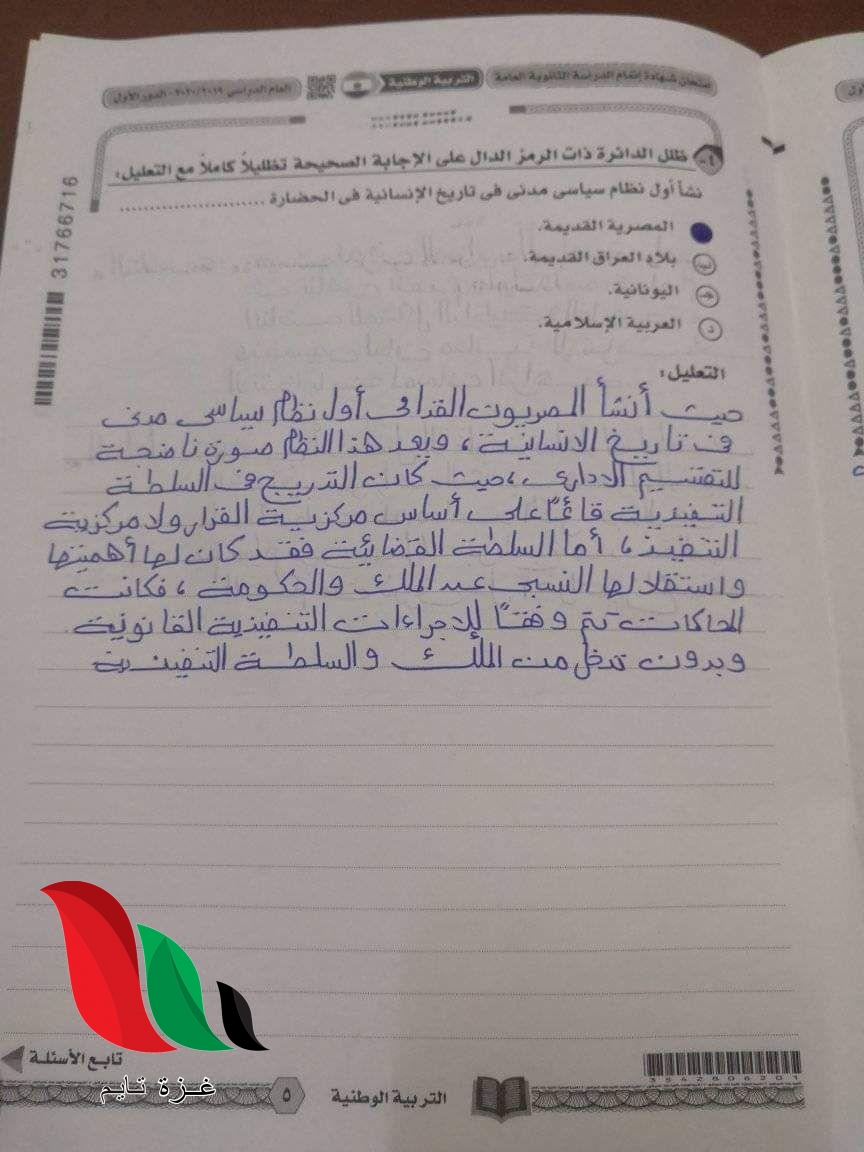 امتحان شهادة إتمام الدراسة الثانوية العامة
التربية الوطنية
العام الدراسي ٢٠٢٠/٢٠١٩ - الدور الأول
٤- ظلل الدائرة ذات الرمز الدال على الإجابة الصحيحة تظليلاً كاملاً مع التعليل:
نشأ أول نظام سياسى مدنى فى تاريخ الإنسانية فى الحضارة ........................
المصرية القديمة.
ب بلاد العراق القديمة.
ج اليونانية.
د العربية الإسلامية.
التعليل:
حيث أنشأ المصريون القدامى أول نظام سياسى مدنى
فى تاريخ الانسانية ، ويعد هذا النظام صورة ناضجة
للتقسيم الادارى ، حيث كان التدريج فى السلطة
التنفيذية قائمًا على أساس مركزية القرار ولا مركزية
التنفيذ ، أما السلطة القضائية فقد كان لها أهميتها
واستقلالها النسبى عند الملك والحكومة ، فكانت
المحاكمات تتم وفقتًا للإجراءات التنفيذية القانونية
وبدون تدخل من الملك والسلطة التنفيذية
31766716
تابع الأسئلة
غزة تايم
٥
التربية الوطنية
3542606201